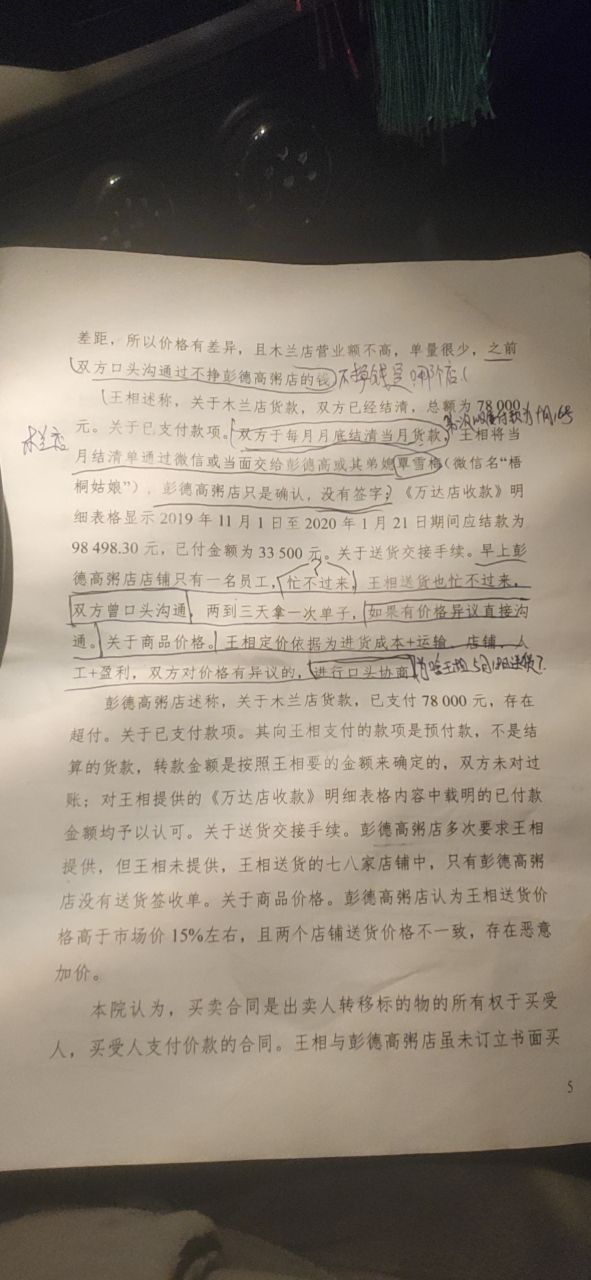 差距，所以价格有差异，且木兰店营业额不高，单量很少，之前
双方口头沟通过不挣彭德高粥店的钱）不挣钱是哪个店！
王相述称，关于木兰店货款，双方已经结清，总额为 78 000
元。关于已支付款项。双方于每月月底结清当月货款，王相将当
木兰店
月结清单通过微信或当面交给彭德高或其弟媳覃雪梅（微信名“梧
桐姑娘”），彭德高粥店只是确认，没有签字？《万达店收款》明
细表格显示 2019 年 11 月 1 日至 2020 年 1 月 21 日期间应结款为
98 498.30 元，已付金额为 33 500 元。关于送货交接手续。早上彭
？
德高粥店店铺只有一名员工，忙不过来，王相送货也忙不过来，
双方曾口头沟通，两到三天拿一次单子，如果有价格异议直接沟
通。关于商品价格。王相定价依据为进货成本+运输、店铺、人
工+盈利，双方对价格有异议的，进行口头协商
彭德高粥店述称，关于木兰店货款，已支付 78 000 元，存在
超付。关于已支付款项。其向王相支付的款项是预付款，不是结
算的货款，转款金额是按照王相要的金额来确定的，双方未对过
账；对王相提供的《万达店收款》明细表格内容中载明的已付款
金额均予以认可。关于送货交接手续。彭德高粥店多次要求王相
提供，但王相未提供，王相送货的七八家店铺中，只有彭德高粥
店没有送货签收单。关于商品价格。彭德高粥店认为王相送货价
格高于市场价 15%左右，且两个店铺送货价格不一致，存在恶意
加价。
本院认为，买卖合同是出卖人转移标的物的所有权于买受
人，买受人支付价款的合同。王相与彭德高粥店虽未订立书面买
5